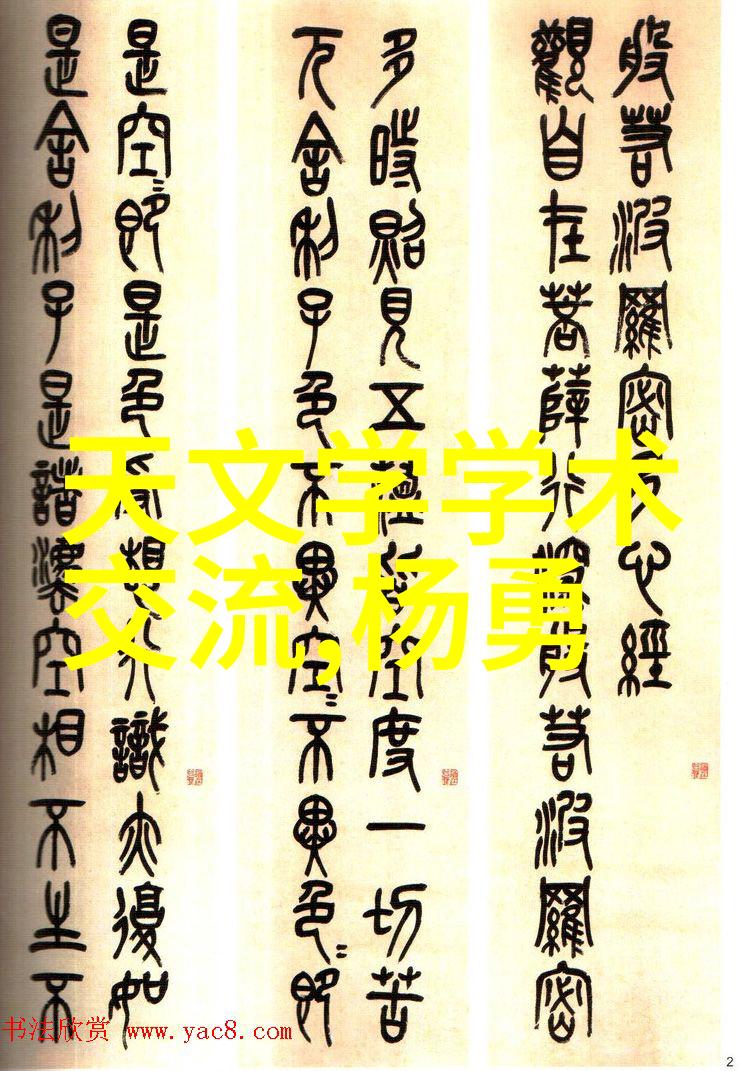 般若波羅密多心經
觀自在菩薩行深般若波羅密
多時照見五蘊皆空度一切苦
厄舍利子色不異空〻不異色〻即
是空〻即是色受想行識亦復如
是舍利子是諸法空相不生不
天文学学术
交流,杨勇
书法欣赏 www.yac8.com
2